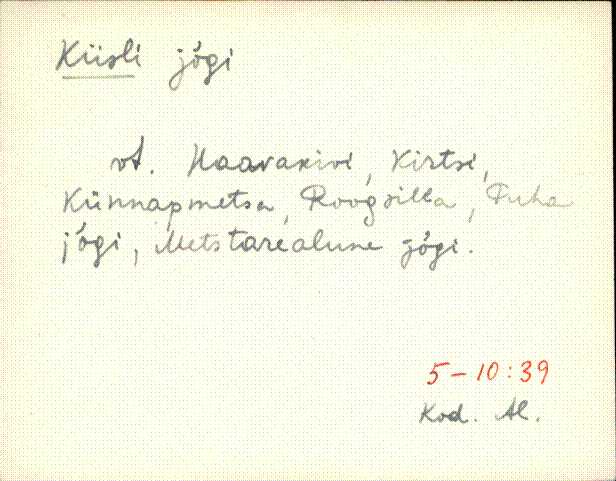 Küsli jõgi
vt. Haavakivi, Kirtsi,
Künnapmetsa, Roogsilla, Puha
jõgi, Metstarealune jõgi.
5-10:39
Kod. Al.